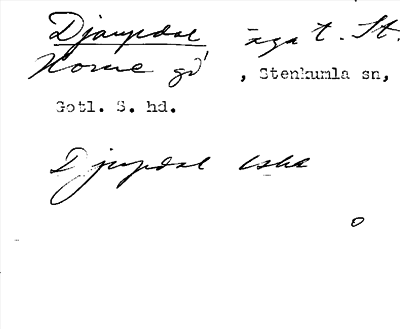 Djaupdal äga t. St.
Norne gd , Stenkumla sn,
Gotl. S. hd.
Djupdal